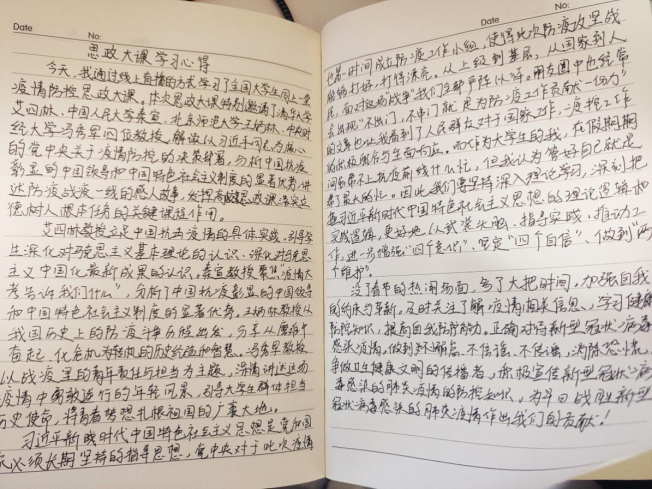 Date No:
思政大课学习心得
今天，我通过线上直播的方式学习了全国大学生同上一堂
疫情防控思政大课。本次思政大课特别邀请了清华大学
艾四林、中国人民大学秦宣、北京师范大学王炳林、中央财
经大学冯秀军四位教授，解读以习近平同志为核心
的党中央关于疫情防控的决策部署，分析中国抗疫
彰显的中国领导和中国特色社会主义制度的显著优势，讲
述防疫战疫一线的感人故事，发挥高校思政课落实立
德树人根本任务的关键课程作用。
艾四林教授立足中国抗击疫情的具体实践，引导学
生深化对马克思主义基本理论的认识、深化对马克思
主义中国化最新成果的认识。秦宣教授聚焦“疫情大
考告诉我们什么”，分析了中国抗疫彰显的中国领导
和中国特色社会主义制度的显著优势。王炳林教授从
我国历史上的防疫斗争历程出发，分享从磨难中
奋起、化危机为转机的历史经验和智慧。冯秀军教授
以战疫里的青年责任与担当为主题，深情讲述这场
疫情中勇敢逆行的年轻风景，引导大学生群体担当
历史使命，将青春梦想扎根祖国的广袤大地。
习近平新时代中国特色社会主义思想是党和国
家必须长期坚持的指导思想，党中央对于此次疫情
Date No:
也第一时间成立防疫工作小组，使得此次防疫攻坚战
能够打好，打得漂亮。从上级到基层，从国家到人
民，面对这场战争，我们全都严阵以待。朋友圈中也经常
会出现“不出门，不串门就是为防疫工作贡献一份力”
的文章也让我看到了人民群众对于国家工作、防控工作
的积极拥护与全面响应。而作为大学生的我，在假期期
间虽帮不上抗疫前线什么忙，但我认为管好自己就是
帮了最大的忙。因此我们需坚持深入理论学习，深刻把
握习近平新时代中国特色社会主义思想的理论逻辑和
实践逻辑，更好地以武装头脑、指导实践、推动工
作，进一步增强“四个意识”、坚定“四个自信”、做到“两
个维护”。
没了春节的热闹场面，多了大把时间，加强自我
的约束与革新。及时关注了解疫情相关信息、学习健康
防护知识，提高自我防护能力。正确对待新型冠状病毒
感染疫情，做到不信谣、不传谣，消除恐慌，
争做卫生健康文明的传播者，积极宣传新型冠状病
毒感染的肺炎疫情的防控知识。为早日战胜新型
冠状病毒感染的肺炎疫情作出我们的贡献！